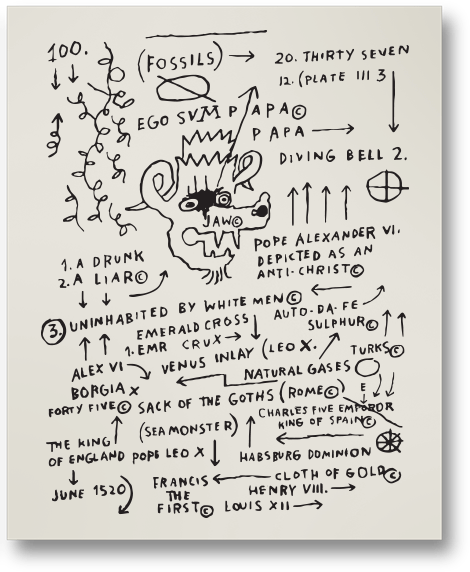 100.
(FOSSILS) → 20. THIRTY SEVEN
12. (PLATE III 3
EGO SVM PAPA©
PAPA →
DIVING BELL 2.
JAW©
POPE ALEXANDER VI.
DEPICTED AS AN
ANTI-CHRIST©
1. A DRUNK
2. A LIAR©
3. UNINHABITED BY WHITE MEN©
AUTO-DA-FE
EMERALD CROSS
SULPHUR©
1. EMR CRUX →
TURKS©
ALEX VI
VENUS INLAY (LEO X.
NATURAL GASES
BORGIA X
E
FORTY FIVE© SACK OF THE GOTHS (ROME©)
CHARLES FIVE EMPEROR
KING OF SPAIN©
(SEA MONSTER)
THE KING
OF ENGLAND POPE LEO X
HABSBURG DOMINION
CLOTH OF GOLD©
JUNE 1520)
FRANCIS
THE
FIRST©
HENRY VIII. →
LOUIS XII →